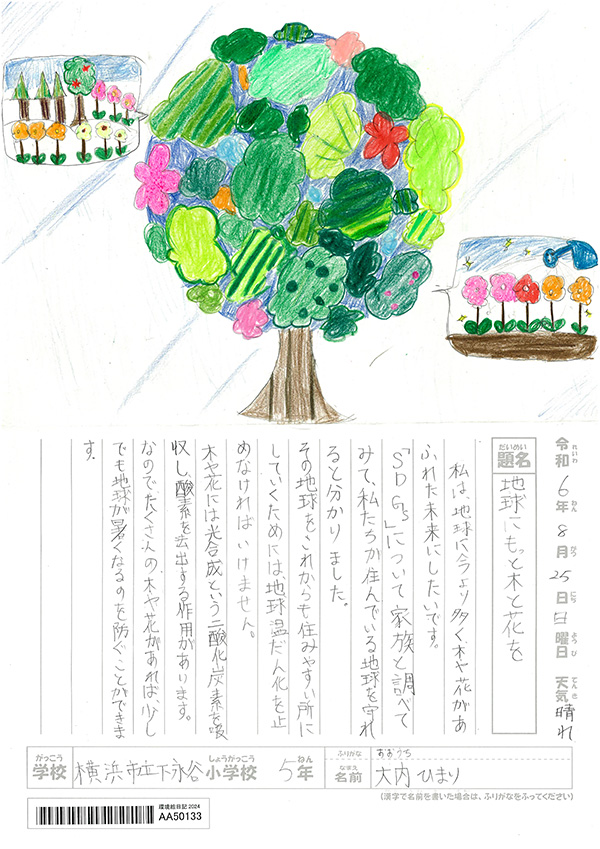 令和6年8月25日日曜日 天気 晴れ
れいわ ねん がつ にち ようび てんき
だいめい
題名 地球にもっと木と花を
私は、地球に今より多く木や花があ
ふれた未来にしたいです。
「SDGs」について家族と調べて
みて、私たちが住んでいる地球を守れ
ると分かりました。
その地球をこれからも住みやすい所に
していくためには、地球温だん化を止
めなければいけません。
木や花には光合成という二酸化炭素を吸
収し、酸素を去出する作用があります。
なのでたくさんの木や花があれば、少し
でも地球が暑くなるのを防ぐことができま
す。
がっこう しょうがっこう ねん
学校 横浜市立下永谷小学校 5年
ふりがな
なまえ
名前 大内 ひまり
(漢字で名前を書いた場合は、ふりがなをふってください)
環境絵日記 2024
AA50133